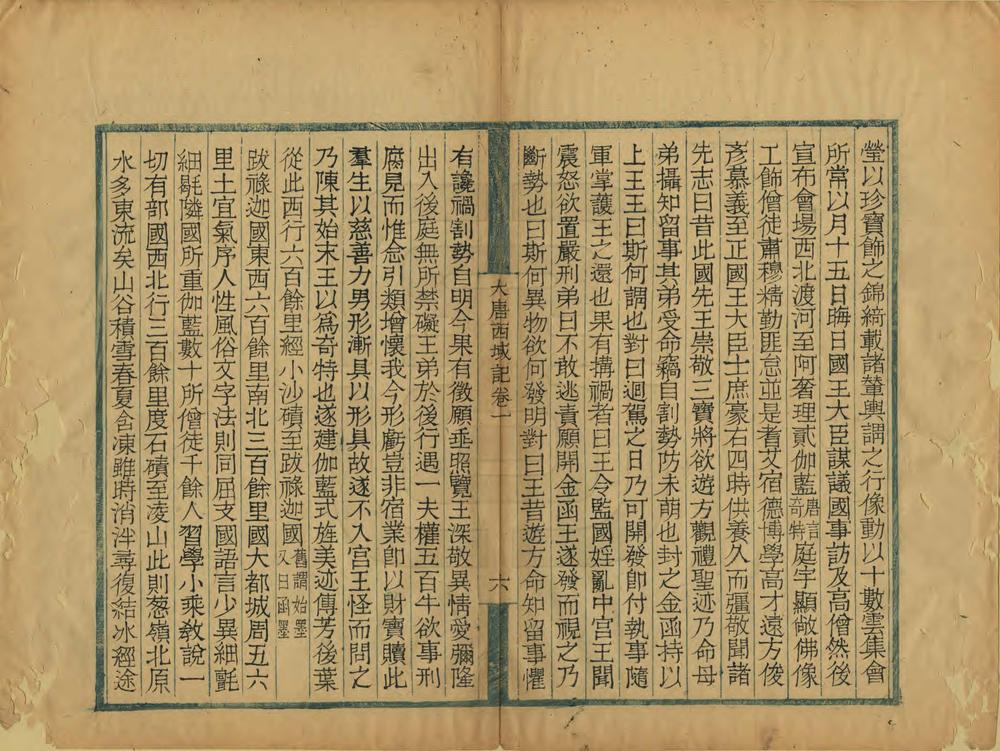 瑩以珍寶飾之錦綺載諸輦輿謂之行像動以十數雲集會
所常以月十五日晦日國王大臣謀議國事訪及高僧然後
宣布會場西北渡河至阿奢理貳伽藍唐言奇特庭宇顯敞佛像
工飾僧徒肅穆精勤匪怠並是耆艾宿德博學高才遠方俊
彥慕義至止國王大臣士庶豪右四時供養久而彌敬聞諸
先志曰昔此國先王崇敬三寶將欲遊方觀禮聖迹乃命母
弟攝知留事其弟受命竊自割勢防未萌也封之金函持以
上王王曰斯何謂也對曰迴駕之日乃可開發卽付執事隨
軍掌護王之還也果有搆禍者曰王令監國婬亂中宮王聞
震怒欲置嚴刑弟曰不敢逃責願開金函王遂發而視之乃
斷勢也曰斯何異物欲何發明對曰王昔遊方命知留事懼
大唐西域記卷一
六
有讒禍割勢自明今果有徵願垂照覽王深敬異情愛彌隆
出入後庭無所禁礙王弟於後行遇一夫權五百牛欲事刑
腐見而惟念引類增懷我今形虧豈非宿業卽以財寶贖此
羣生以慈善力男形漸具以形具故遂不入宮王怪而問之
乃陳其始末王以爲奇特也遂建伽藍式旌美迹傳芳後葉
從此西行六百餘里經小沙磧至跋祿迦國舊謂始墨又曰函墨
跋祿迦國東西六百餘里南北三百餘里國大都城周五六
里土宜氣序人性風俗文字法則同屈支國語言少異細氈
細毼隣國所重伽藍數十所僧徒千餘人習學小乘敎說一
切有部國西北行三百餘里度石磧至凌山此則葱嶺北原
水多東流矣山谷積雪春夏含凍雖時消泮尋復結冰經途